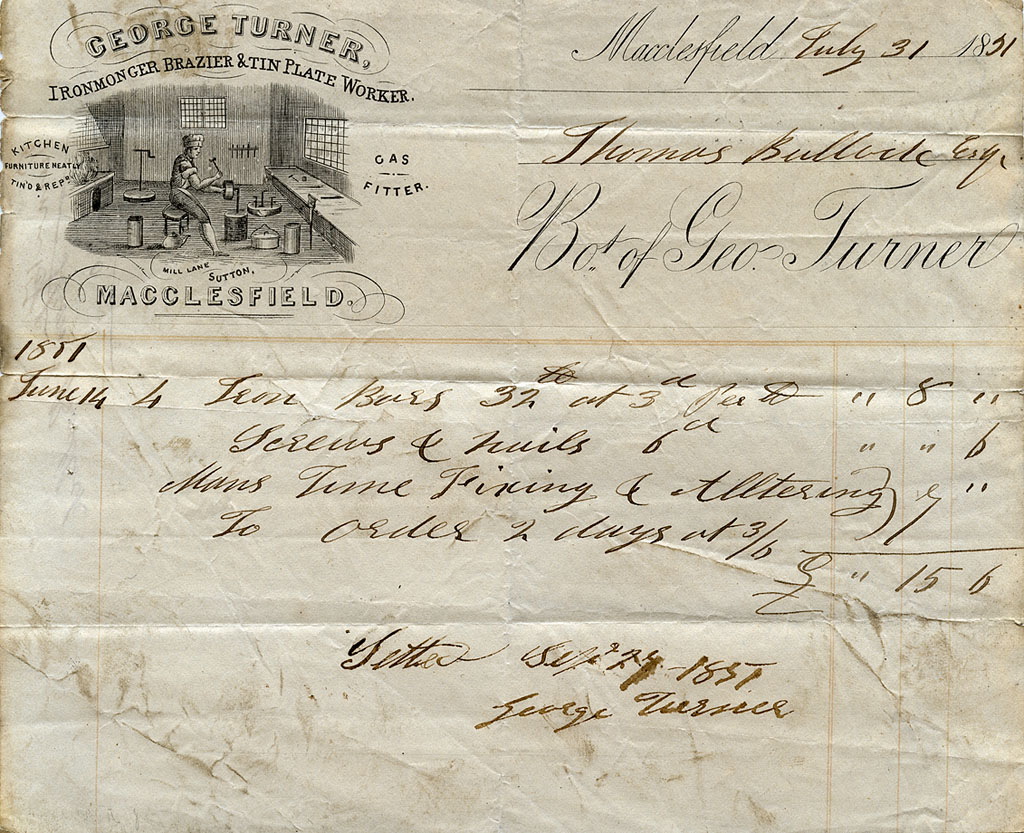 GEORGE TURNER,
IRONMONGER BRAZIER & TIN PLATE WORKER.
KITCHEN
FURNITURE NEATLY
TIN'D & REPD
GAS
FITTER.
MILL LANE SUTTON,
MACCLESFIELD.
Macclesfield July 31 1851
Thomas Bullock Esqr
Bot. of Geo. Turner
1851
June 14 4 Iron Bars 32 lb at 3d Per lb " 8 "
Screws & Nails 6d " " 6
Mans Time Fixing & Alltering
To order 2 days at 3/6 7 "
£ " 15 6
Settled Sep 1851
George Turner